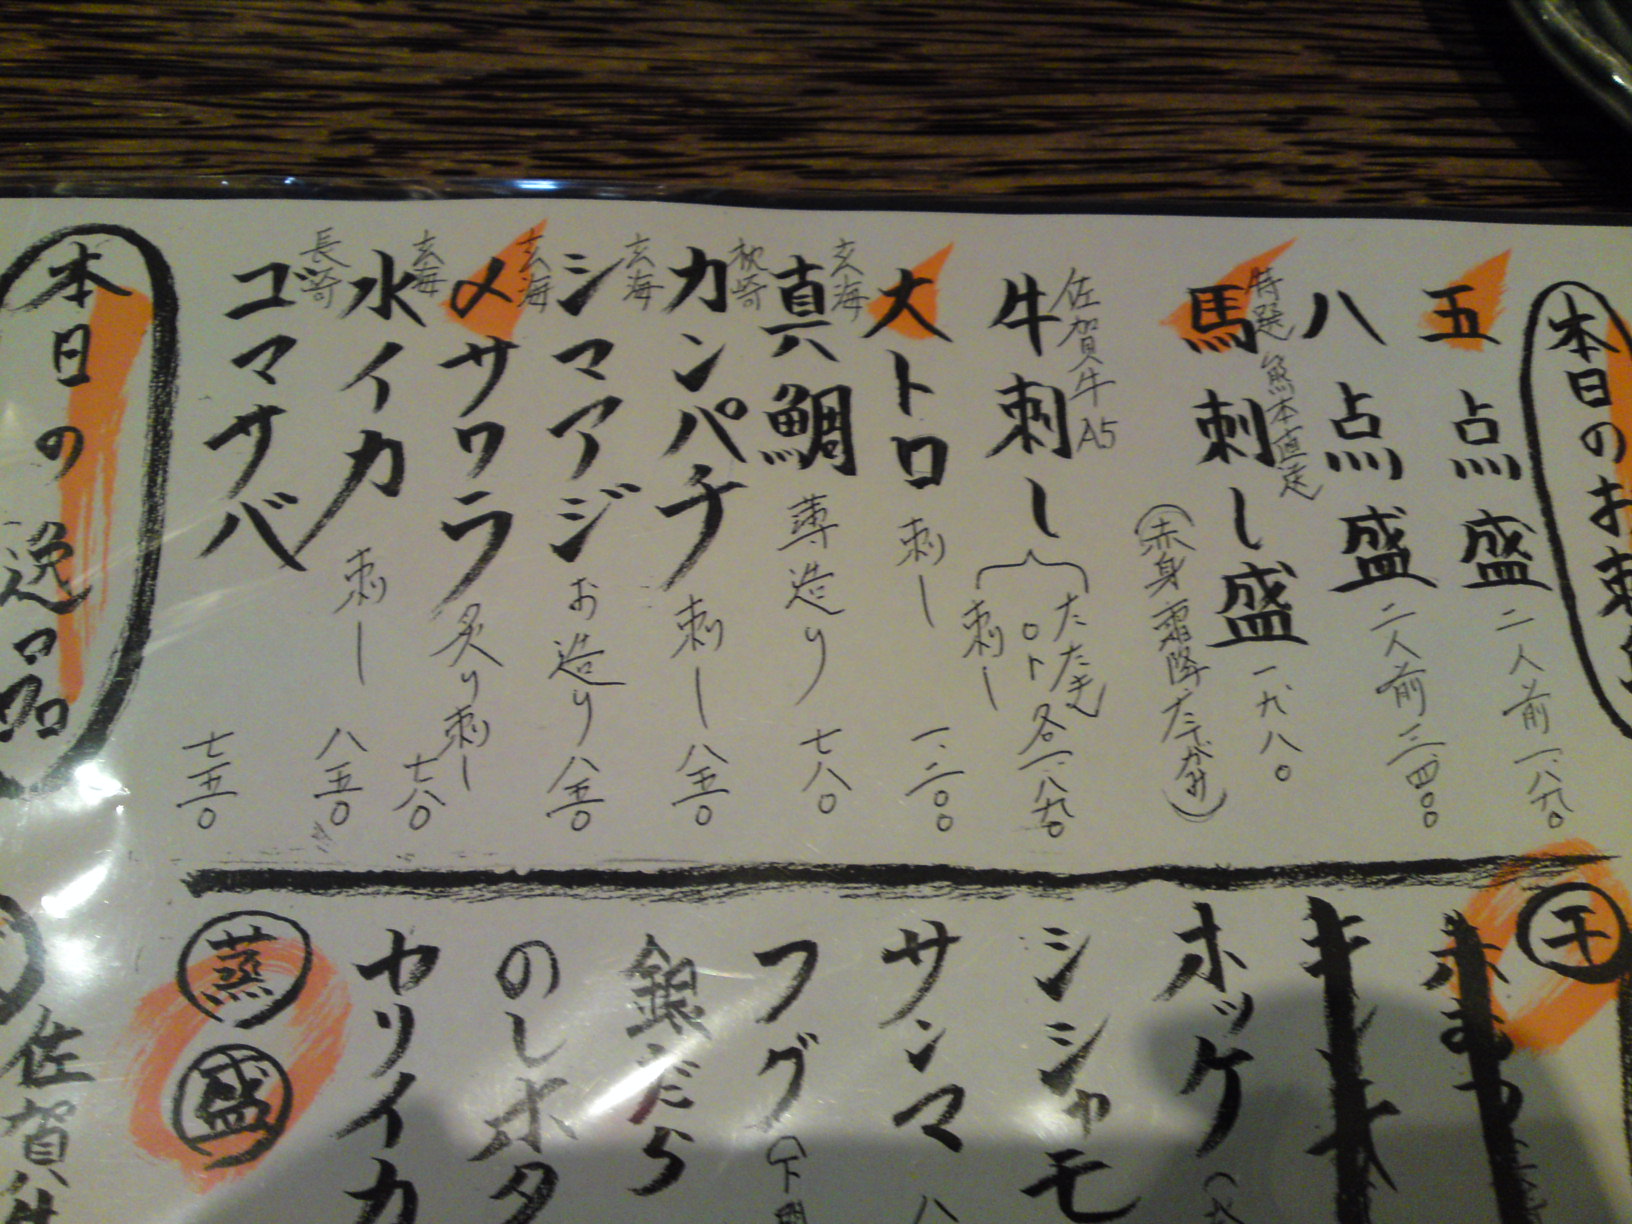 本日のお刺身
五点盛 二人前 一、八九〇
八点盛 二人前 三、四〇〇
特選 熊本直送
馬刺し盛 一九八〇
(赤身 霜降 たてがみ)
佐賀牛 A5
牛刺し たたき or 刺し 各一、八九〇
大トロ 刺し 一、二〇〇
玄海
真鯛 薄造り 七八〇
枕崎
カンパチ 刺し 八五〇
玄海
シマアジ お造り 八五〇
玄海
〆サワラ 炙り刺し 七八〇
玄海
水イカ 刺し 八五〇
長崎
ゴマサバ 七五〇
本日の逸品
干
ホッケ
シシャモ
サンマ 八
フグ (下関
銀だら
のしホタ
ヤリイカ
蒸
盛
佐賀牛